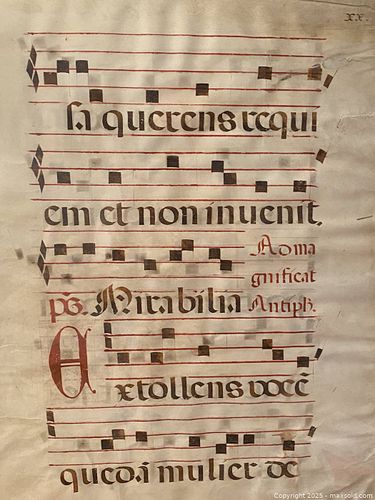 xx.
sa querens requi
em et non inuenit.
Ad ma
gnificat
ps. Mirabilia Antiph.
Extollens vocē
quedā mulier de
Copyright 2025 - maxsold.com